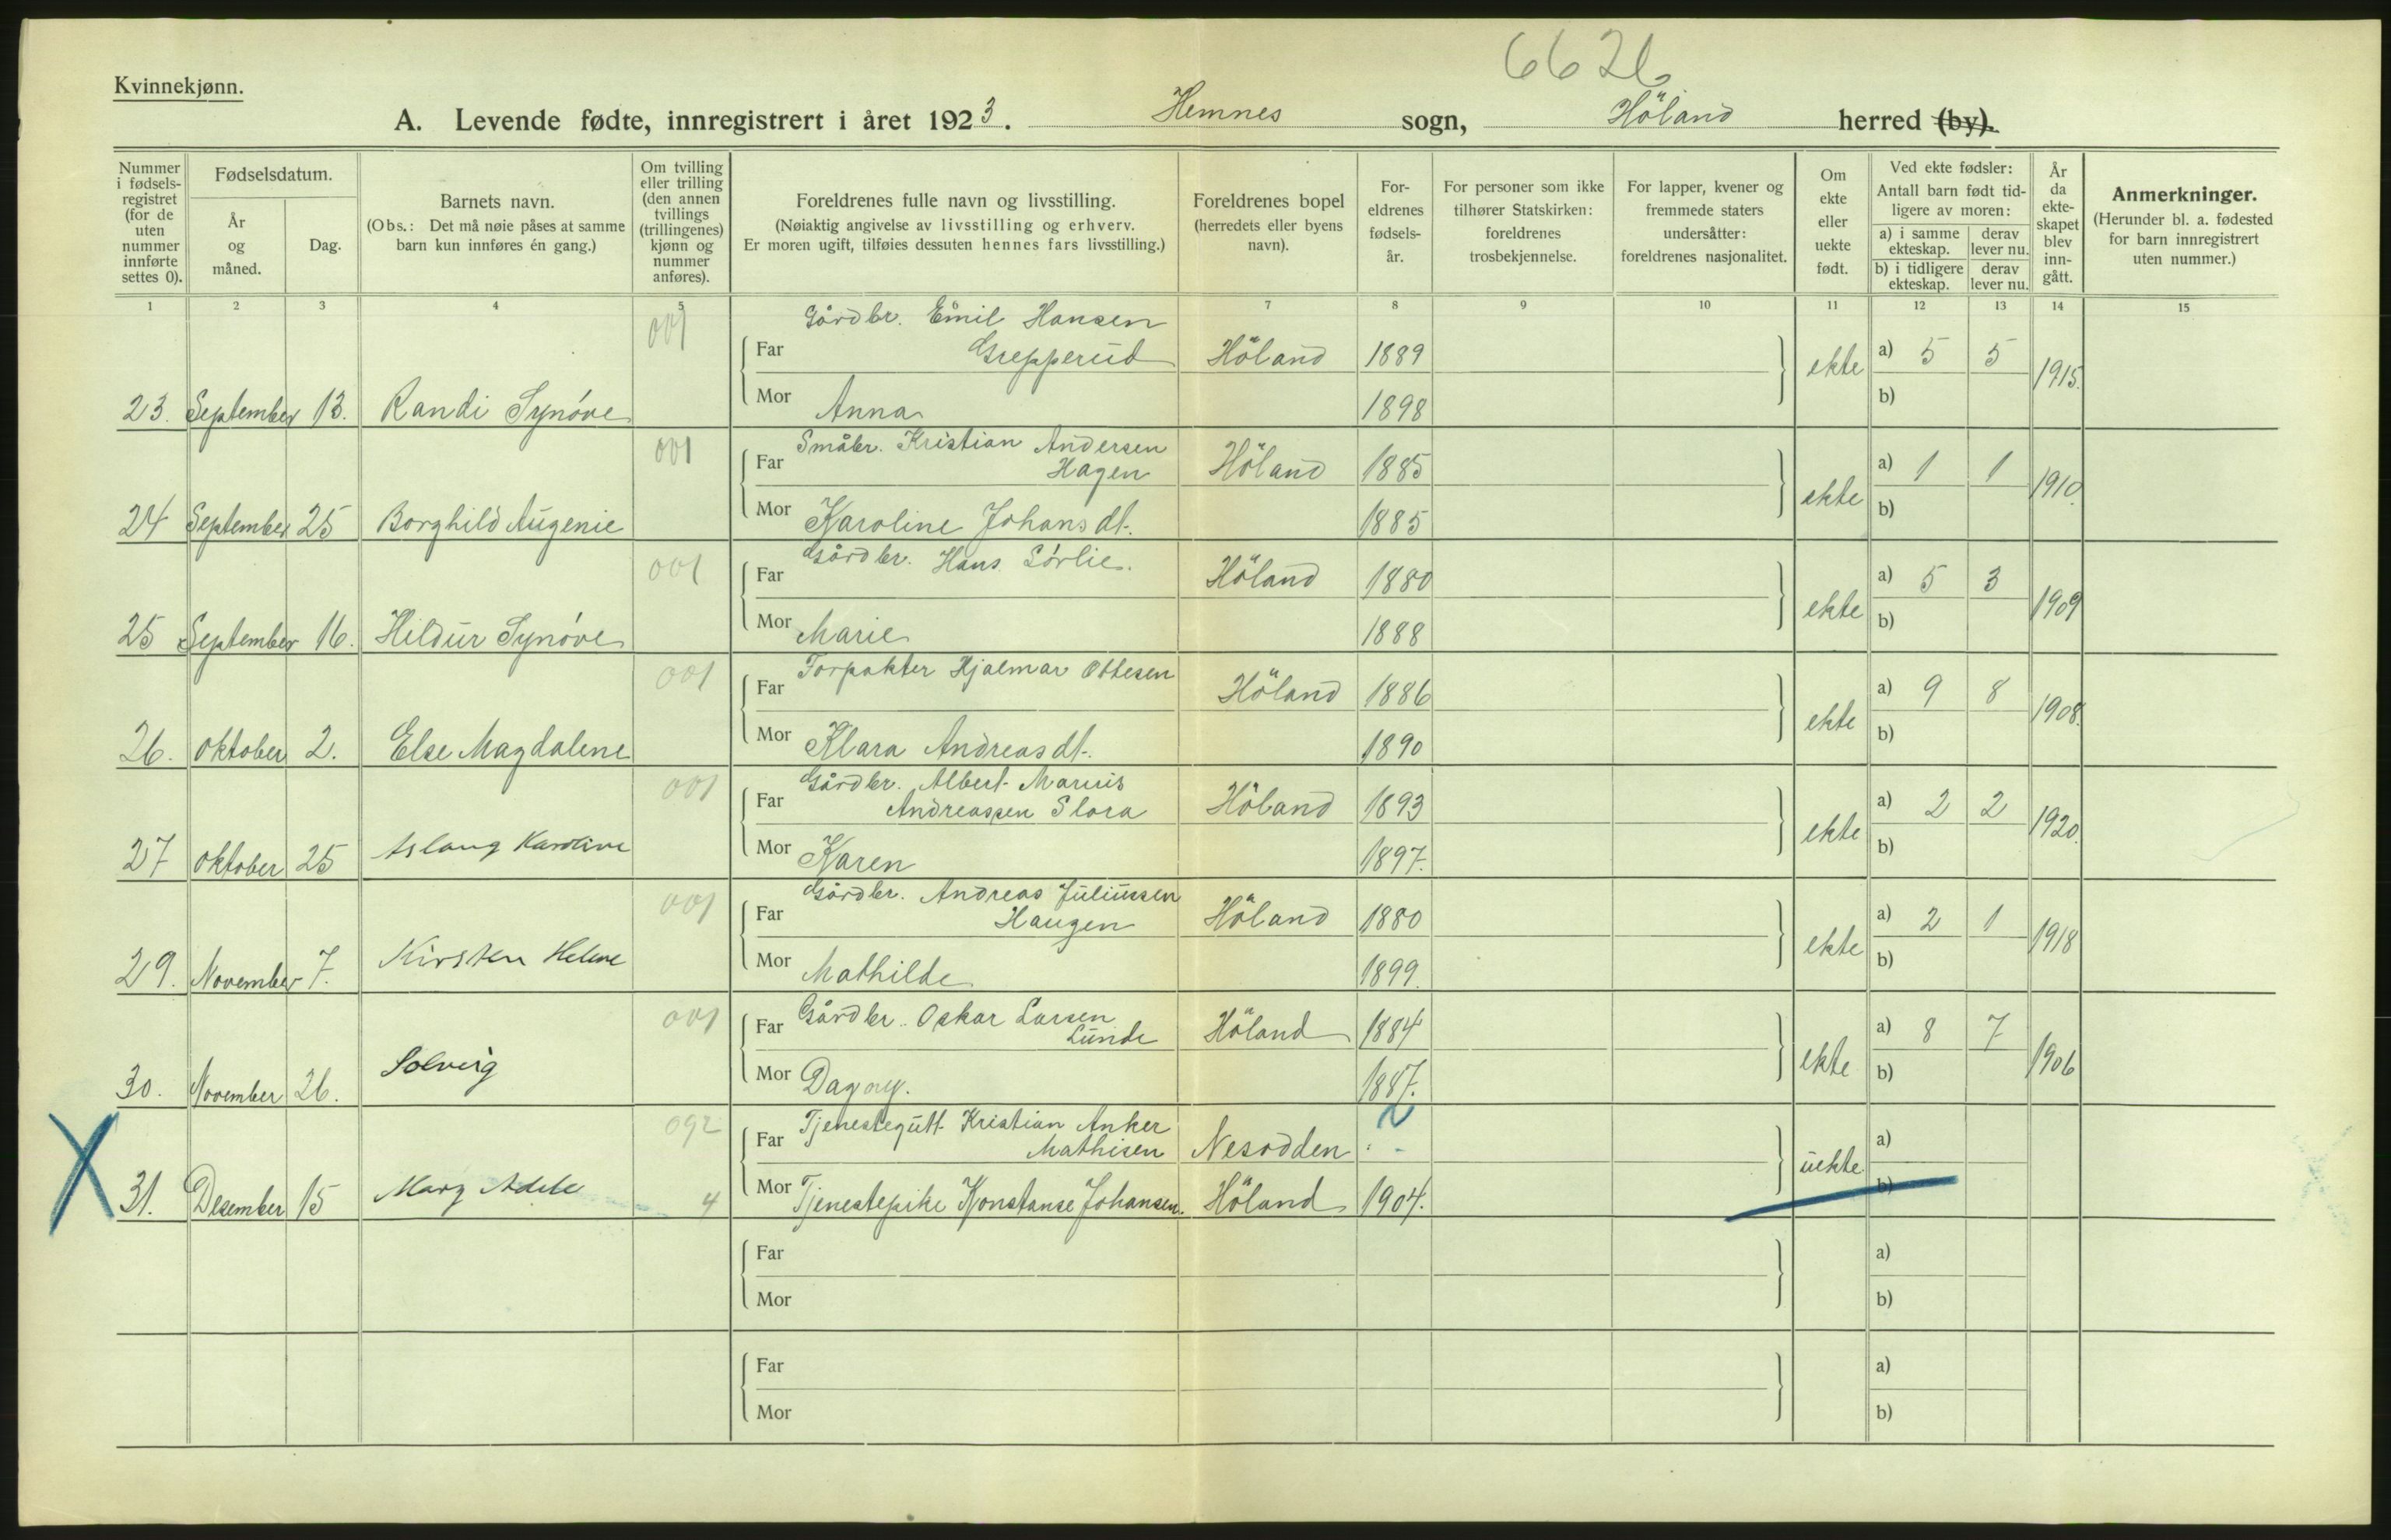 6626
Kvinnekjønn.
A. Levende fødte, innregistrert i året 1923. Hemnes sogn, Höland herred (by).
Nummer i fødsels-registret (for de uten nummer innførte settes 0).
Fødselsdatum.
År og måned.
Dag.
Barnets navn.
(Obs.: Det må nøie påses at samme barn kun innføres én gang.)
Om tvilling eller trilling (den annen tvillings (trillingenes) kjønn og nummer anføres).
Foreldrenes fulle navn og livsstilling.
(Nøiaktig angivelse av livsstilling og erhverv.
Er moren ugift, tilføies dessuten hennes fars livsstilling.)
Foreldrenes bopel (herredets eller byens navn).
For-eldrenes fødsels-år.
For personer som ikke tilhører Statskirken: foreldrenes trosbekjennelse.
For lapper, kvener og fremmede staters undersåtter: foreldrenes nasjonalitet.
Om ekte eller uekte født.
Ved ekte fødsler:
Antall barn født tid-ligere av moren:
a) i samme ekteskap. derav lever nu.
b) i tidligere ekteskap. derav lever nu.
År da ekte-skapet blev inn-gått.
Anmerkninger.
(Herunder bl. a. fødested for barn innregistrert uten nummer.)
1 2 3 4 5 7 8 9 10 11 12 13 14 15
001 Gårdbr. Emil Hansen
Far Grepperud Höland 1889 ekte a) 5 5 1915.
23. September 13. Randi Synóve Mor Anna 1898 b)
001 Småbr. Kristian Andersen
Far Hagen Höland 1885 ekte a) 1 1 1910.
24 September 25 Borghild Augenie Mor Karoline Johansdt. 1885 b)
001 Gårdbr. Hans Sórlie.
Far Höland 1880 ekte a) 5 3 1909
25 September 16. Hildur Synóve Mor Marie 1888 b)
001 Forpakter Hjalmar Ottesen
Far Höland 1886 ekte a) 9 8 1908.
26. Oktober 2. Else Magdalene Mor Klara Andreasdt. 1890 b)
001 Gårdbr. Albert Marius
Far Andreassen Slora Höland 1893 ekte a) 2 2 1920.
27 Oktober 25 Aslaug Karoline Mor Karen 1897. b)
001 Gårdbr. Andreas Juliussen
Far Haugen Höland 1880 ekte a) 2 1 1918
29. November 7. Kirsten Helene Mor Mathilde 1899. b)
001 Gårdbr. Oskar Larsen
Far Lunde Höland 1884 ekte a) 8 7 1906
30. November 26. Solveig Mor Dagny. 1887. b)
092 Tjenestegutt Kristian Anker
Far Mathisen Nesodden - uekte a)
X 31. Desember 15 Mary Adele 4 Mor Tjenestepike Konstanse Johansen. Höland 1904. b)
Far a)
Mor b)
Far a)
Mor b)